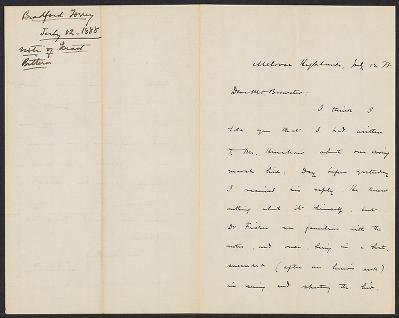 Bradford Torrey
July 12. 1888
note of Least
Bittern
Melrose Highlands, July 12
Dear Mr Brewster:
I think I
told you that I had written
to Mr. Henshaw about our
marsh bird. Day before yesterday
I received his reply. He knows
nothing about it himself, but
Dr Fisher is familiar with the
notes, and once, being in a boat,
succeeded (after an hour's work)
in seeing and shooting the bird.